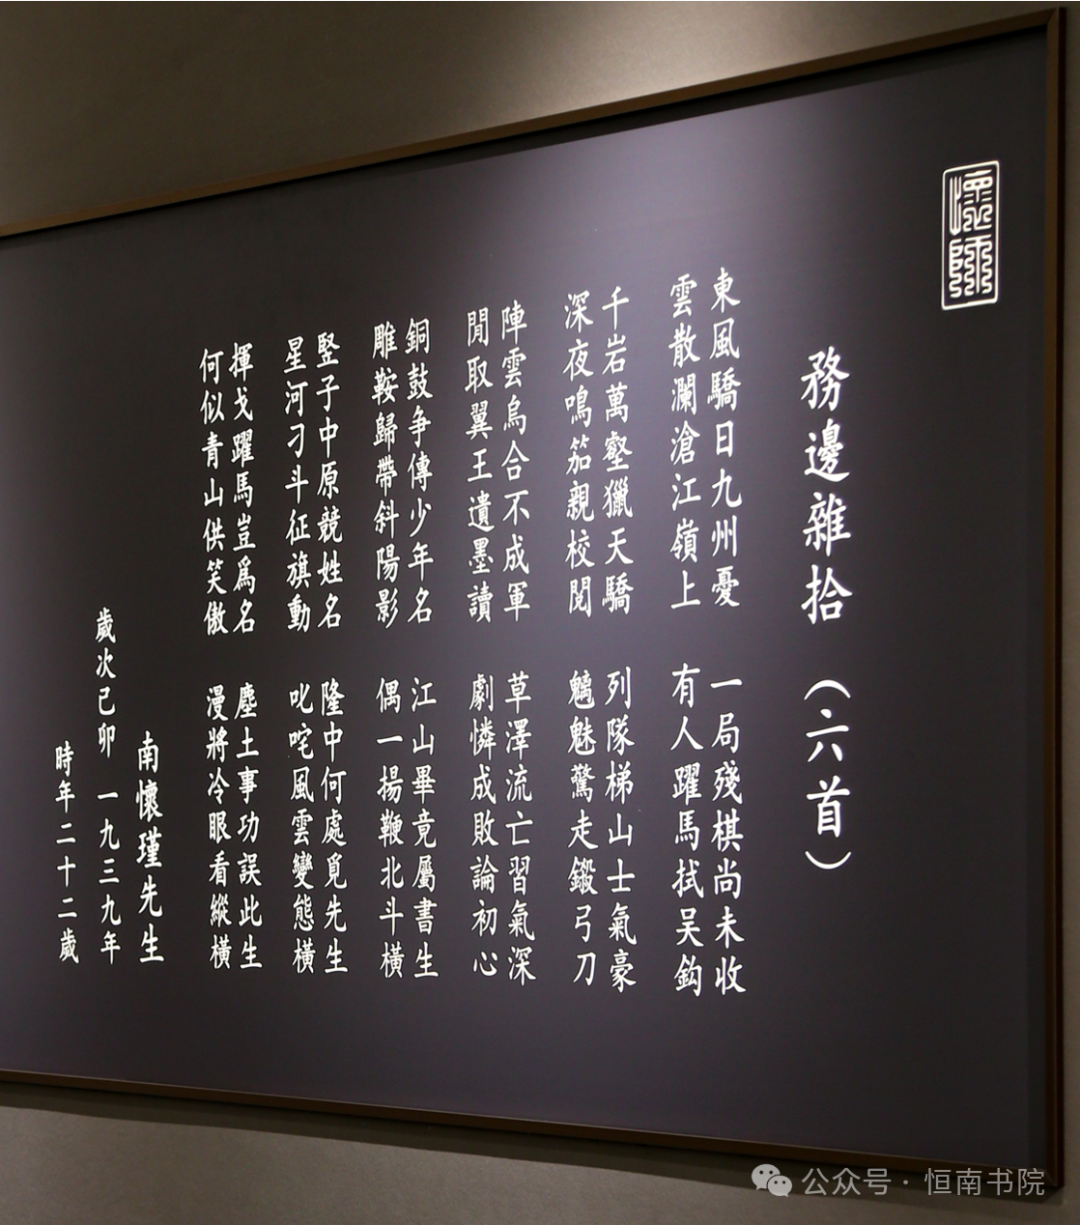 懷師
務邊雜拾（六首）
東風驕日九州憂 一局殘棋尚未收
雲散瀾滄江嶺上 有人躍馬拭吴鈎
千岩萬壑獵天驕 列隊梯山士氣豪
深夜鳴笳親校閱 魑魅驚走鍛弓刀
陣雲烏合不成軍 草澤流亡習氣深
閒取翼王遺墨讀 劇憐成敗論初心
銅鼓争傳少年名 江山畢竟屬書生
雕鞍歸帶斜陽影 偶一揚鞭北斗橫
竪子中原競姓名 隆中何處覓先生
星河刁斗征旗動 叱咤風雲變態橫
揮戈躍馬豈爲名 塵土事功誤此生
何似青山供笑傲 漫將冷眼看縱橫
南懷瑾先生
歲次己卯 一九三九年
時年二十二歲
公众号·恒南书院